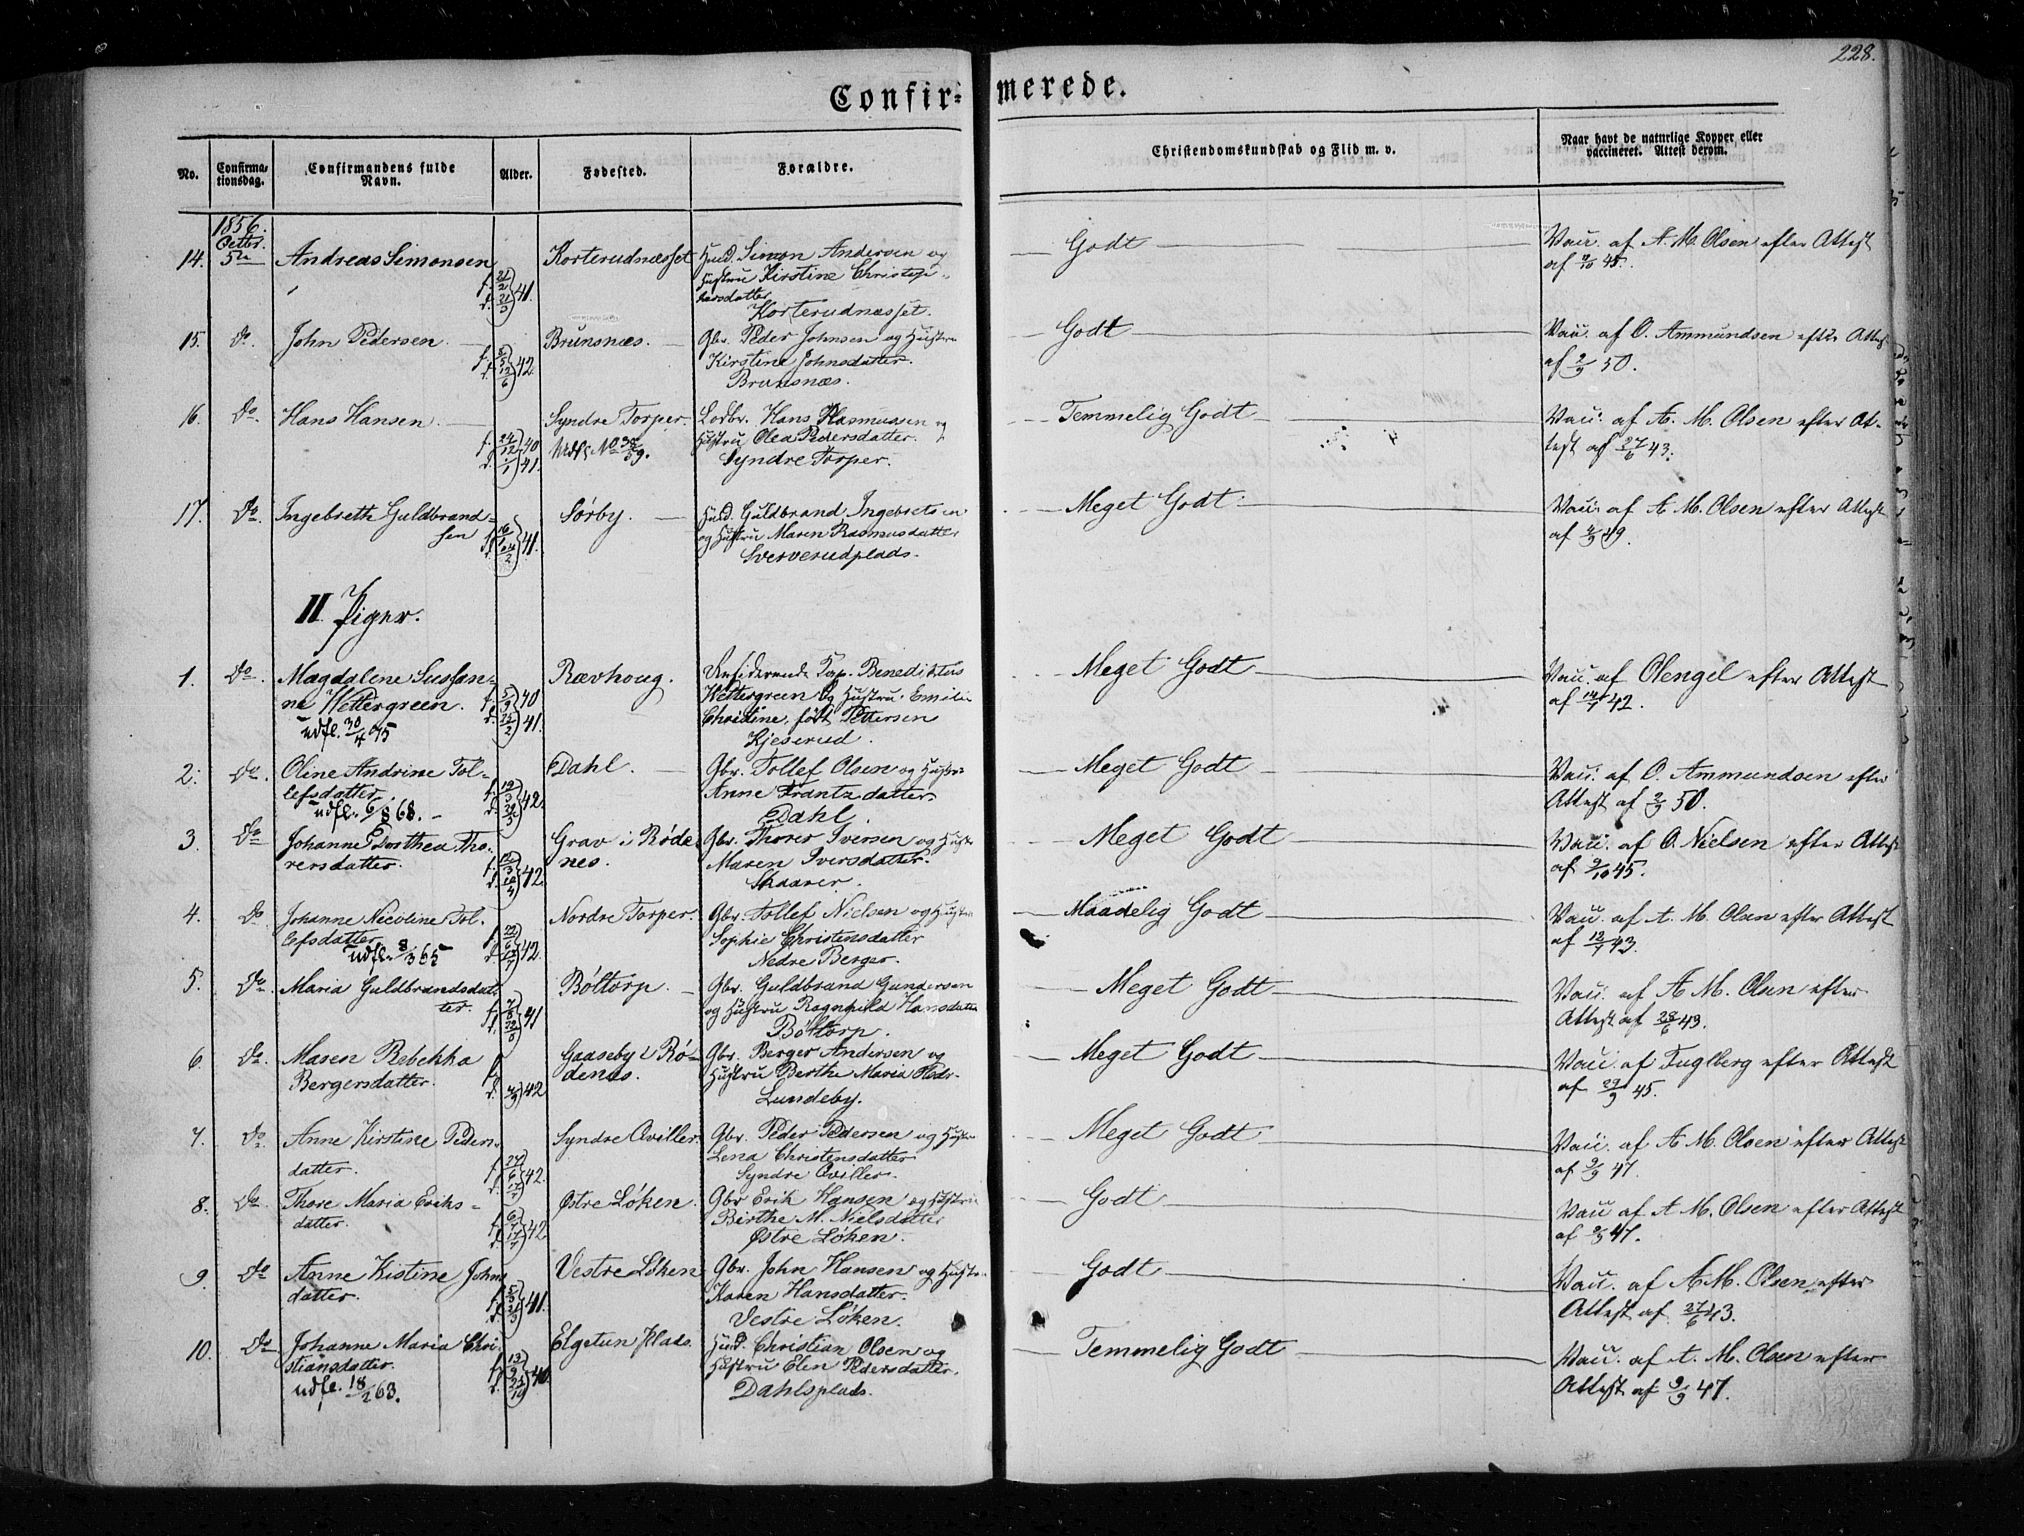 228.
Confirmerede.
No.
Confirmationsdag.
Confirmandens fulde Navn.
Alder.
Fødested.
Forældre.
Christendomskundskab og Flid m. v.
Naar havt de naturlige Kopper eller vaccineret. Attest derom.
1856.
Octbr.
14. 5te Andreas Simonsen f. 21/2 d. 21/3 41. Korterudnæsset Husd. Simon Andersen og
Hustru Kirstine Christophersdatter
Korterudnæsset.
Godt
Vacc. af A. M. Olsen efter Attest
af 9/10 45.
15. Do. John Pedersen f. 5/5 d. 12/6 42. Brunsnæs. Gbr. Peder Johnsen og Hustru
Kirstine Johnsdatter.
Brunsnæs.
Godt
Vacc. af O. Ammundsen efter Attest
af 2/9 50.
16. Do. Hans Hansen f. 24/12 40 d. 1/1 41. Syndre Torper. Lodbr. Hans Rasmussen og
Udfl. No 38/59. Hustru Olea Pedersdatter.
Syndre Torper.
Temmelig Godt
Vacc. af A. M. Olsen efter At-
test af 27/6 43.
17. Do. Ingebreth Guldbrand-
sen 41. Sørby. Husd. Guldbrand Ingebretsen
og Hustru Maren Rasmusdatter
Sververudplads.
Meget Godt
Vacc. af A. M. Olsen efter Attest
af 2/9 49.
II. Piger.
1. Do. Magdalene Susan-
ne Wettergreen. f. 5/9 40 d. 25/2 41. Rævhoug.
udfl. 30/4 75
Kap. Benediktus
Wettergreen og Hustru Emilie
Christine, født Pettersen
Kjeserud.
Meget Godt
Vacc. af Olengel efter Attest
af 14/7 42.
2. Do. Oline Andrine Tol-
lefsdatter. f. 12/3 42. Dahl. Gbr. Tollef Olsen og Hustru
udfl. 6/8 68.
Anne Frantzdatter.
Dahl.
Meget Godt
Vacc. af O. Ammundsen efter
Attest af 2/9 50.
3. Do Johanne Dorthea Tho-
rersdatter. 42. Grav i Røde-
nes. Gbr. Thorer Iversen og Hustr
Maren Iversdatter.
Skaarer.
Meget Godt
Vacc. af O. Nielsen efter Attest
af 9/10 45.
4. Do Johanne Nicoline Tol-
lefsdatter f. 22/6 d. 17/7 42. Nordre Torper. Gbr. Tollef Nielsen og Hustru
udfl. 8/3 65
Sophie Christensdatter
Nedre Berger.
Maadelig Godt
Vacc. af A. M. Olsen efter Attest
af 12/7 43.
5. Do. Maria Guldbrandsdat-
ter. 41 Bøltorp. Gbr. Guldbrand Gundersen
og Hustru Ragnhild Hansdatter
Bøltorp.
Meget Godt
Vacc. af A. M. Olsen efter
Attest af 28/6 43.
6. Do. Maren Rebekka
Bergersdatter. f. d. 42 Gaaseby i Rø-
denes. Gbr. Berger Andersen og
Hustru Berthe Maria Pedr-
Lundeby.
Meget Godt
Vacc. af Fuglberg efter Attest
af 29/9 45.
7. Do. Anne Kirstine Peder-
datter. f. 24/6 d. 17/7 42. Syndre Qviller. Gbr. Peder Pedersen og Hustru
Lena Christensdatter
Syndre Qviller.
Meget Godt
Vacc. af A. M. Olsen efter Attest
af 9/9 47.
8. Do. Thore Maria Eriks-
datter. f. 6/7 d. 17/7 42 Østre Løken. Gbr Erik Hansen og Hustru
Birthe M. Nielsdatter
Østre Løken.
Godt
Vacc af A. M. Olsen efter Attest
af 9/9 47.
9. Do Anne Kistine Johns
datter. 41. Vestre Løken Gbr. John Hansen og Hustru
Karen Hansdatter.
Vestre Løken.
Godt
Vacc. af A M. Olsen efter
Attest af 27/6 43.
10. Do Johanne Maria Chri-
stiansdatter. 40. Elgetun Plads. Husd. Christian Olsen og
udfl. 18/2 63.
Hustru Elen Pedersdatter.
Dahlsplads.
Temmelig Godt
Vacc. af A. M. Olsen efter
Attest af 9/9 47.